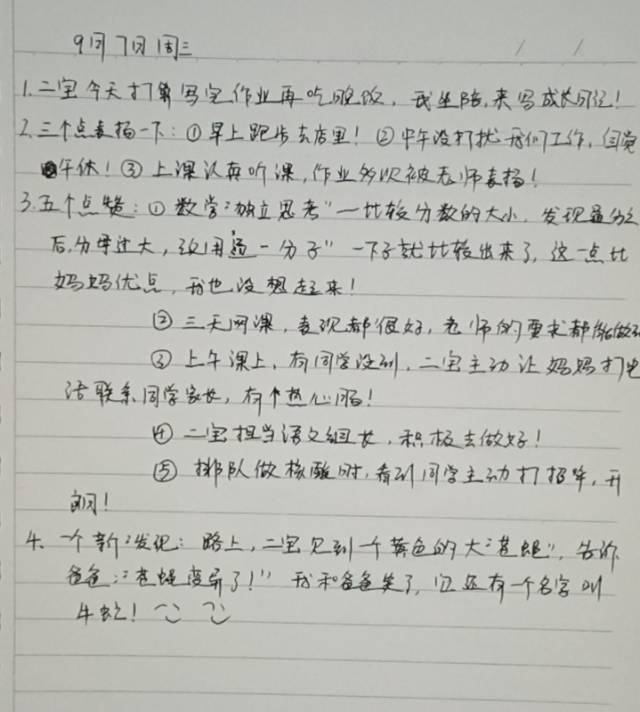 9月7日 周三
1.二宝今天打算写完作业再吃晚饭，我坐陪，来写成长日记！
2.三个点表扬一下：①早上跑步去店里！②中午没打扰我们工作，自觉
午休！③上课认真听课，作业多次被老师表扬！
3.五个点赞：①数学"独立思考"一比较分数的大小，发现通分之
后，分母过大，改用通一分子"一下子就比较出来了，这一点比
妈妈优点，我也没想起来！
②三天网课，表现都很好，老师的要求都能做到
③上午课上，有同学没到，二宝主动让妈妈打电
话联系同学家长，有个热心肠！
④二宝担当语文组长，积极去做好！
⑤排队做核酸时，看到同学主动打招呼，开
朗！
4.一个新发现：路上，二宝见到一个黄色的大"苍蝇"，告诉
爸爸："苍蝇变异了！"我和爸爸笑了，它还有一个名字叫
牛虻！